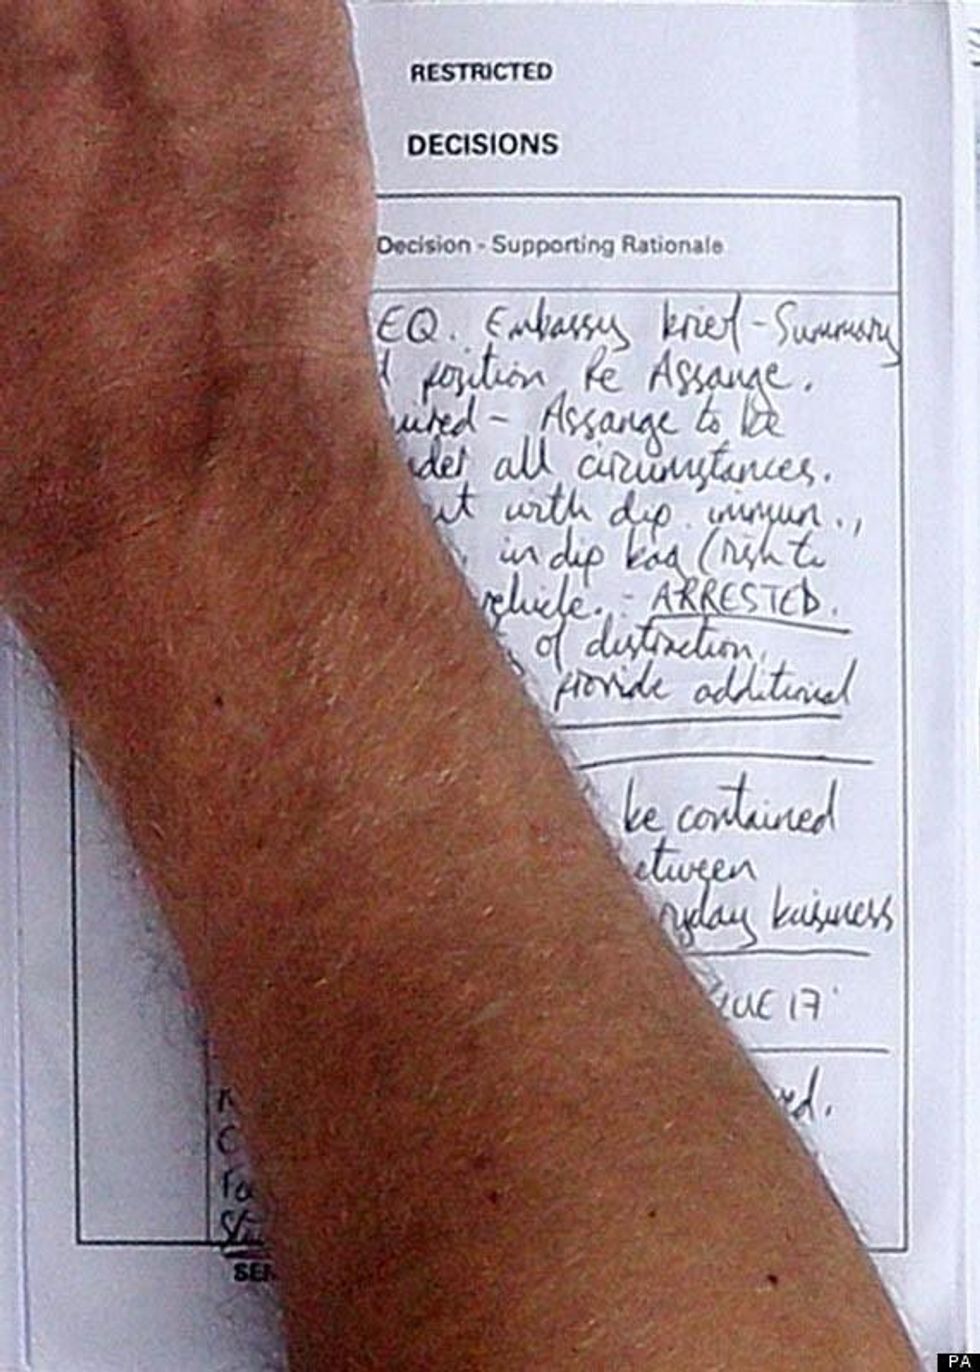 RESTRICTED
DECISIONS
Decision - Supporting Rationale
EQ. Embassy brief - Summary
position Re Assange.
Assange to be
all circumstances.
with dip. immun.,
in dip bag (risk to
vehicle. ARRESTED.
of distraction,
provide additional
be contained
etween
ryday business
17
PA